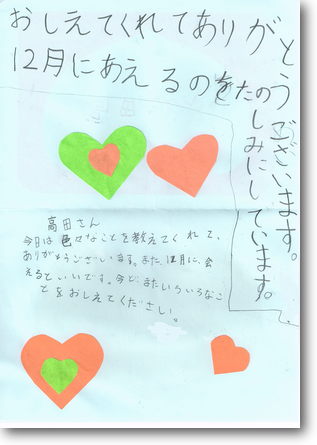 おしえてくれてありがとうございます。
12月にあえるのをたのしみにしています。
高田さん
今日は色々なことを教えてくれて、
ありがとうございます。また、12月に、会
えるといいです。今ど、またいろいろなこ
とをおしえてください。